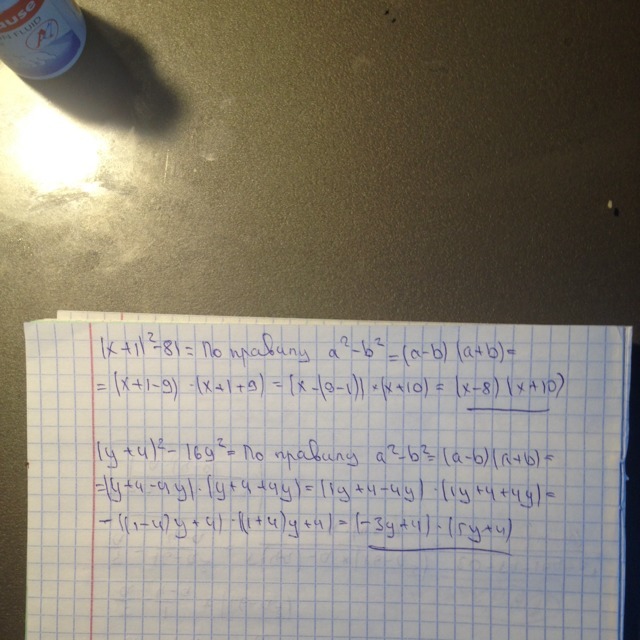 use
FLUID
(x+1)²-81 = По правилу a²-b² = (a-b)(a+b) =
= (x+1-9)·(x+1+9) = (x-(9-1))·(x+10) = (x-8)(x+10)
(y+4)²-16y² = По правилу a²-b² = (a-b)(a+b) =
= (y+4-4y)·(y+4+4y) = (1y+4-4y)·(1y+4+4y) =
- ((1-4)y+4)·((1+4)y+4) = (-3y+4)·(5y+4)